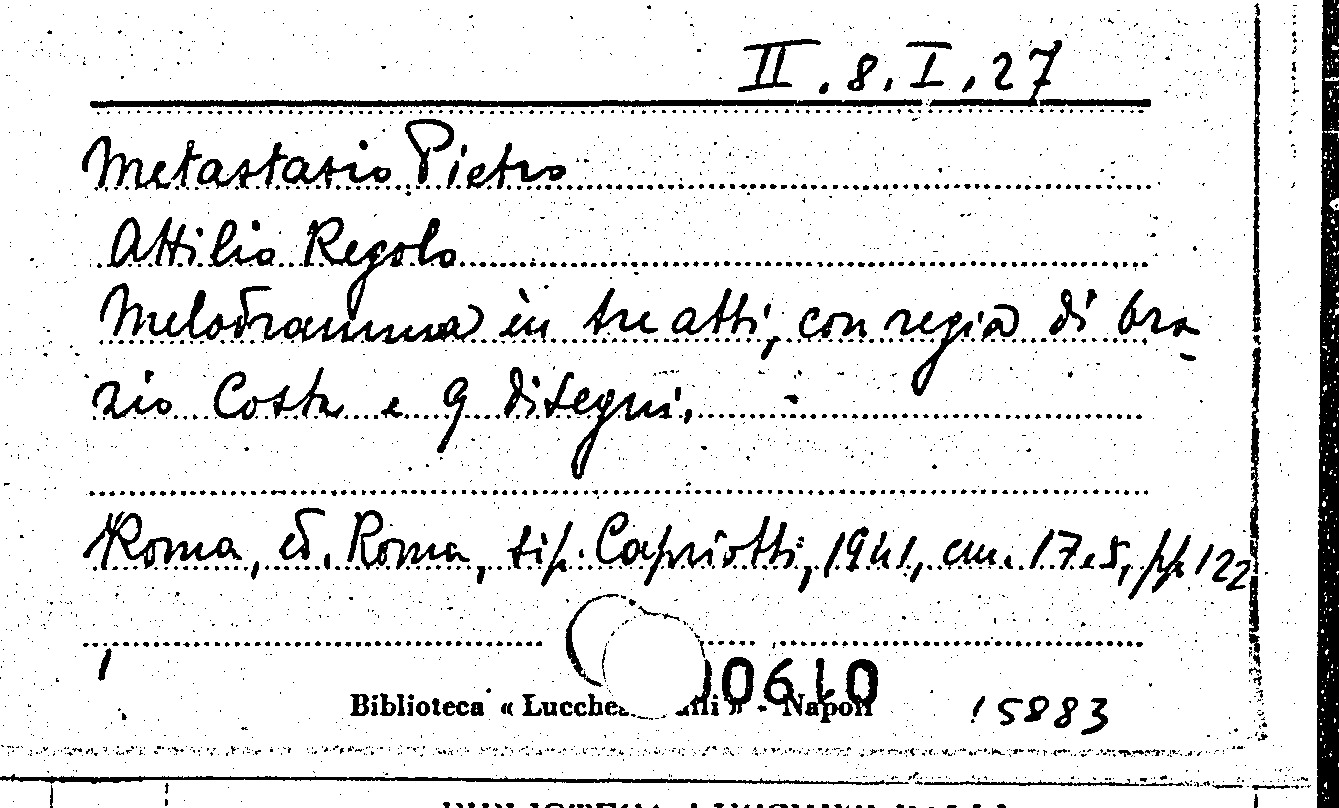 II.8.I.27
Metastasio Pietro
Attilio Regolo
Melodramma in tre atti, con regia di Ora-
zio Costa e 9 disegni.
Roma, ed. Roma, tip. Capriotti, 1941, cm. 17.5, pp. 122
1
00610
Biblioteca « Lucchesi Palli » - Napoli
15883